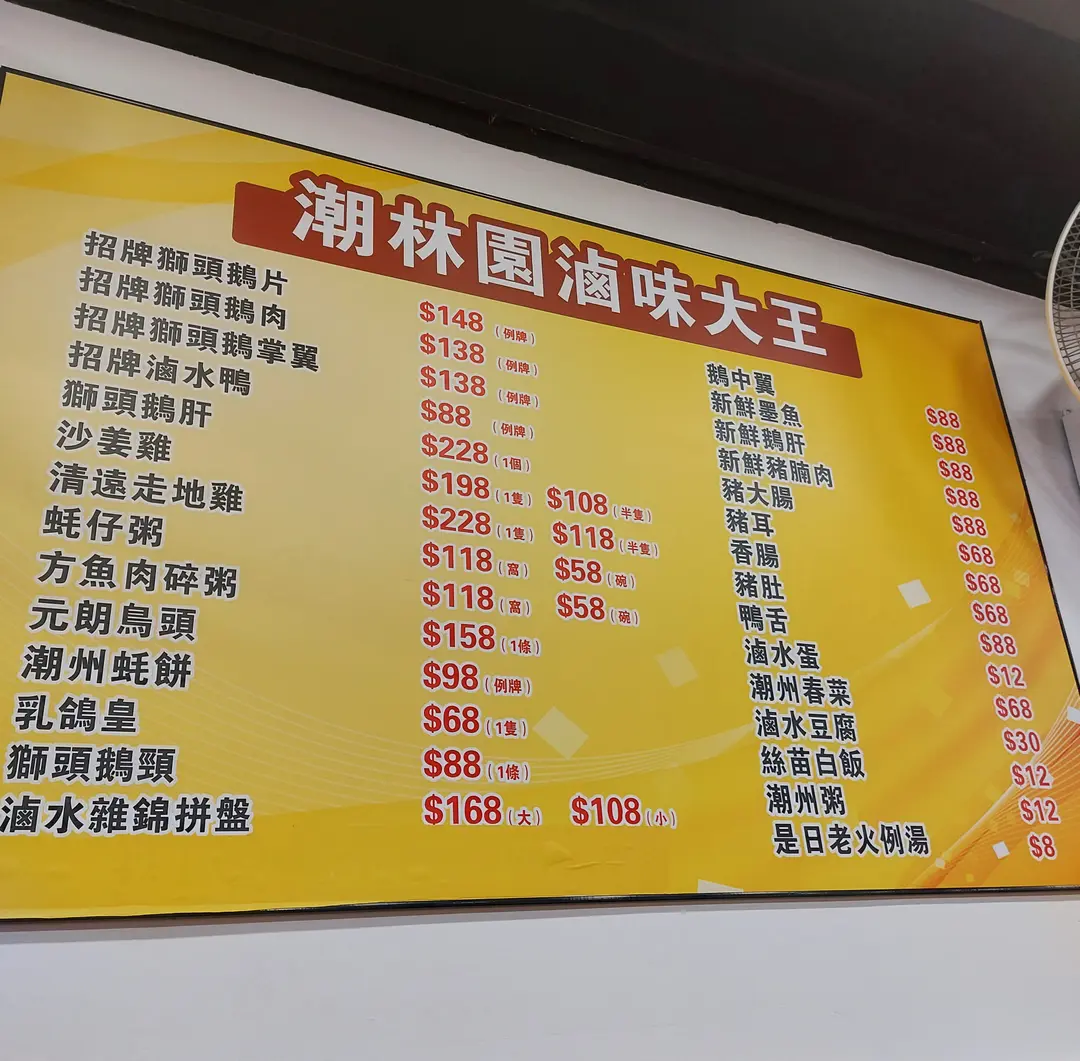 潮林園滷味大王
招牌獅頭鵝片 $148(例牌)
招牌獅頭鵝肉 $138(例牌)
招牌獅頭鵝掌翼 $138(例牌)
招牌滷水鴨 $88(例牌)
獅頭鵝肝 $228(1個)
沙姜雞 $198(1隻) $108(半隻)
清遠走地雞 $228(1隻) $118(半隻)
蚝仔粥 $118(窩) $58(碗)
方魚肉碎粥 $118(窩) $58(碗)
元朗烏頭 $158(1條)
潮州蚝餅 $98(例牌)
乳鴿皇 $68(1隻)
獅頭鵝頸 $88(1條)
滷水雜錦拼盤 $168(大) $108(小)
鵝中翼 $88
新鮮墨魚 $88
新鮮鵝肝 $88
新鮮豬腩肉 $88
豬大腸 $88
豬耳 $68
香腸 $68
豬肚 $68
鴨舌 $88
滷水蛋 $12
潮州春菜 $68
滷水豆腐 $30
絲苗白飯 $12
潮州粥 $12
是日老火例湯 $8